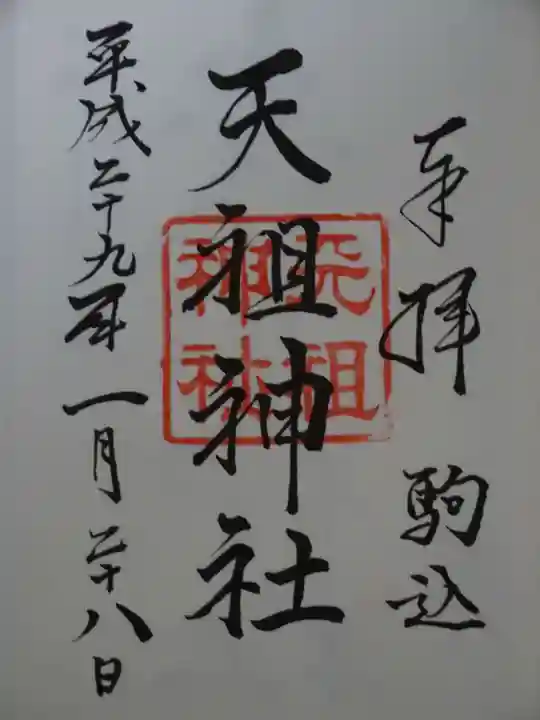 奉拝 駒込
天祖神社
天祖神社
平成二十九年一月二十八日